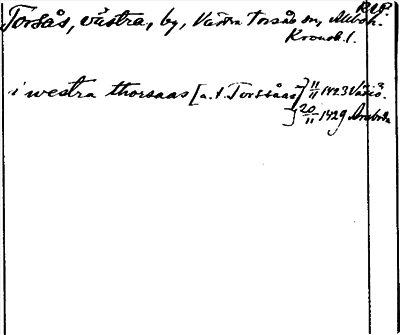 R.A.P.
Torsås, västra, by, Västra Torsås sn, Allbo h.
Kronob. l.
i westra thorsaas [a.t. Torssaas] 11/11 1423 Växiö.
] 20/11 1429